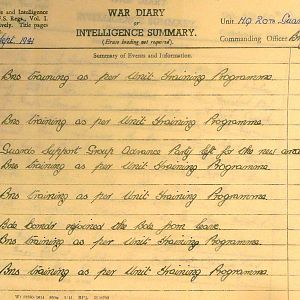 s and Intelligence
F.S. Regs., Vol. I.
ively. Title pages
WAR DIARY
OF
INTELLIGENCE SUMMARY.
(Erase heading not required).
Unit H.Q. 20th. Guar
Sept. 1941
Commanding Officer
Summary of Events and Information.
Bns training as per Unit Training Programme.
Bns training as per Unit Training Programme.
Guards Support Group Advance Party left for the new area
Bns training as per Unit Training Programme.
Bns training as per Unit Training Programme.
Bde Comdr rejoined the Bde from leave.
Bns training as per Unit Training Programme.
Bns training as per Unit Training Programme.